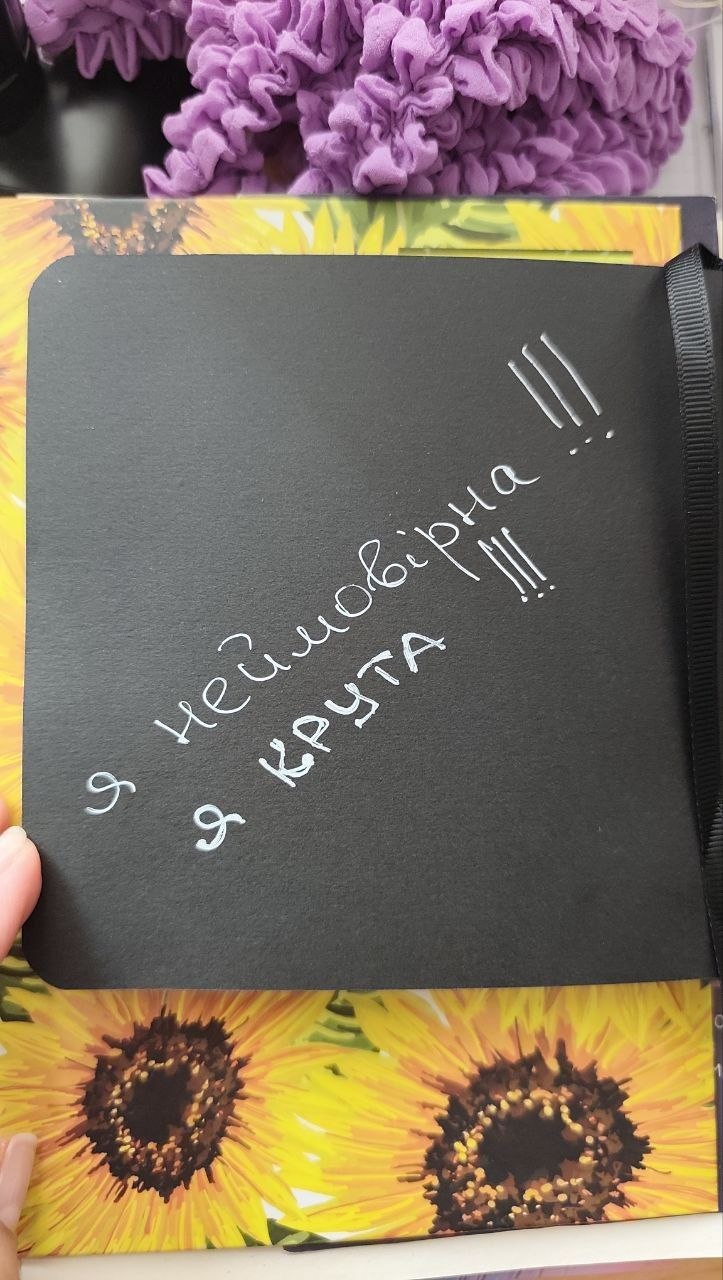 я неймовірна !!!
я КРУТА !!!